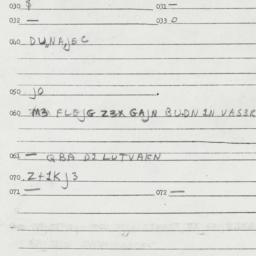 030 $ 031 —
032 — 033 0
040 DUNAJEC
050 JO .
060 M3 FLEJG Z3X GAJN BUDN IN VASIR
061 — GBA DI LUTVAKN
070 Z+1KJ3
071 — 072 —